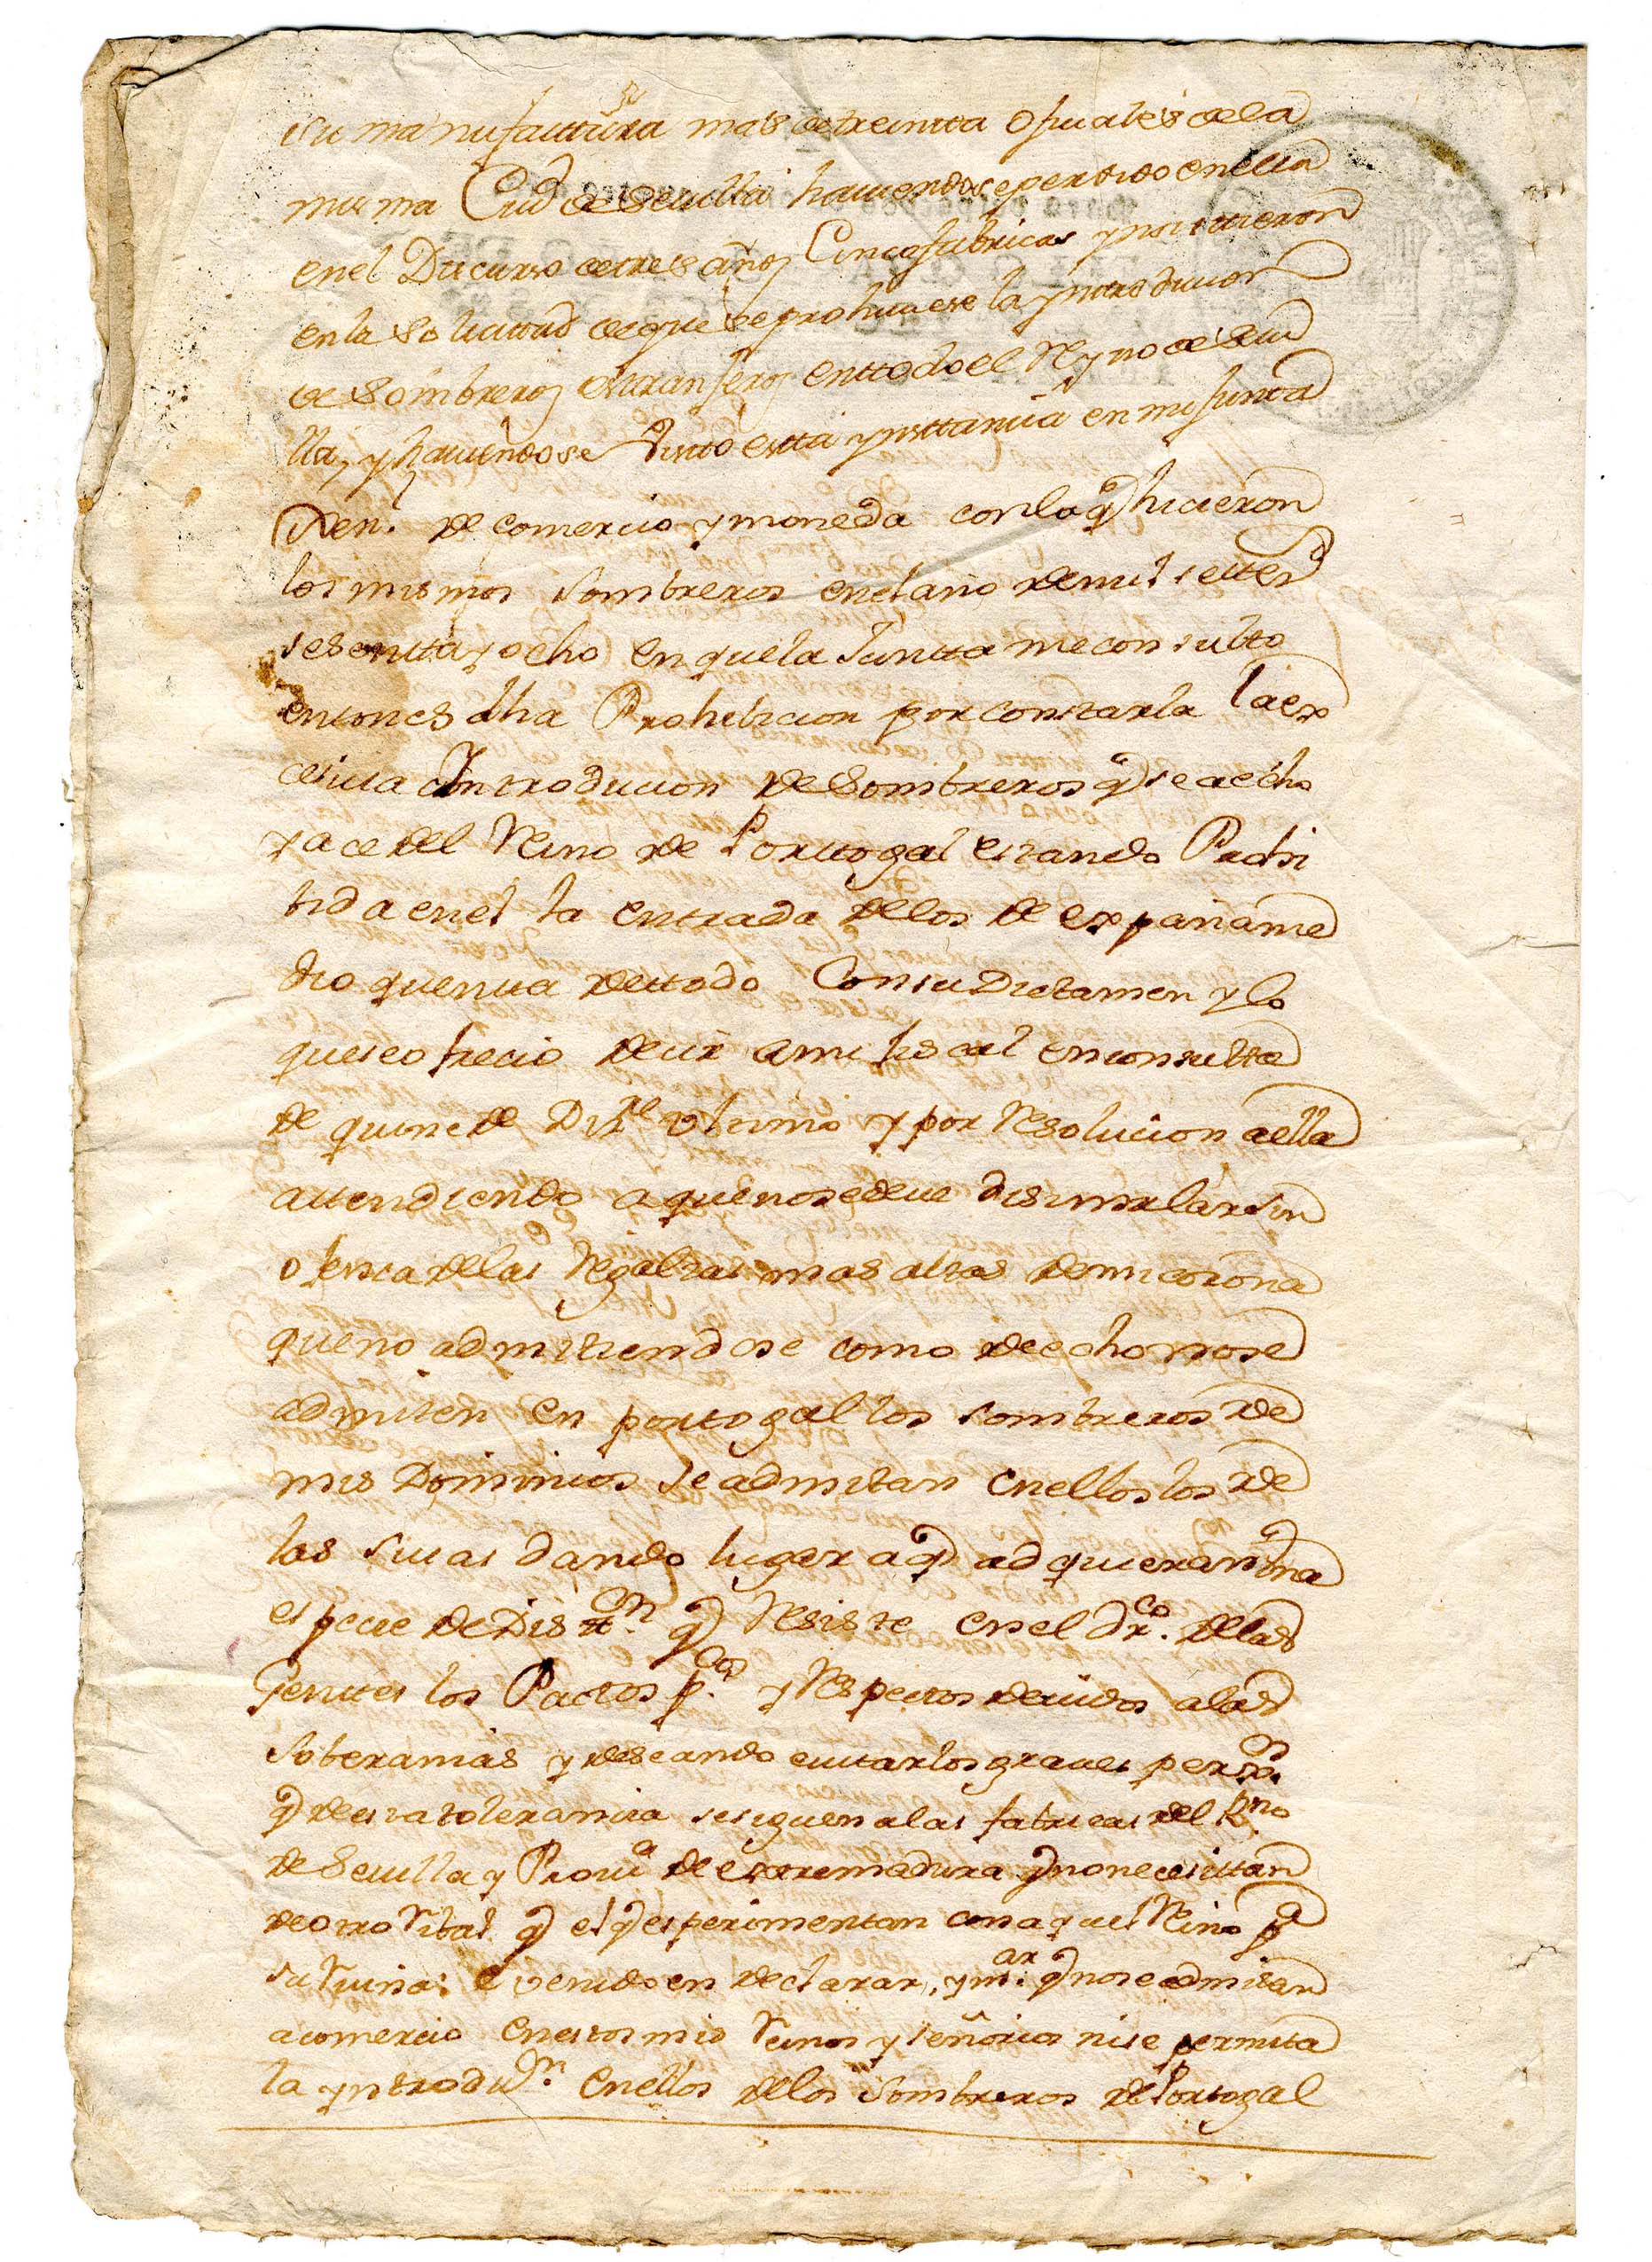 su manufacttura mas de treintta ofiuales de la
misma Ciud de Sevilla haviendose perdido en ella
en el Discurso de tres años Cinco fabricas ynsittieron
en la Solizittud de que se prohiviese la yntroduzion
de Sombreros estranjeros entto do el Reyno de Sevi
lla, y haviendose Visto esta ynsttanzia en mi Juntta
Gen.l de Comercio y moneda con lo q hicieron
los mismos Sombreros en el año de mil settes
sesentta y ocho en que la Juntta me consulto
entones dha Prohibicion por constarla la ex
cesiva Introducion de Sombreros q se a echo
y ace del Reino de Porttogal estando Prohi
bida en el la entrada de los de españa me
dio quenta de ttodo Con su Dictamen y lo
que se ofrecio decir a mi fiscal en consultta
de quince de Dizre ultimo y por Resolucion a ella
attendiendo a que no se deve disimular sin
ofensa de las Regalias mas altas de mi corona
que no admitiendose como de echo no se
admiten en porttogal los sombreros de
mis Dominios se admitan en ellos los de
las suias dando luger a q adquieran una
especie de Distn.on q Resiste en el dro. de las
Gentes los Pactos p.cos y Respectos devidos a las
Soberanias y deseando evitar los graves perxos.
q de esta toleranzia se siguen a las fabricas del R.no
de Sevilla y Provia de extremadura q no necesittan
de otro Ribal q el q esperimentan con aquel Reino pa
su Ruina: e venido en declarar, y m.ar q no se admitan
a comercio en estos mis Reinos y señorios ni se permita
la yntroduz.n en ellos de los Sombreros de Portogal